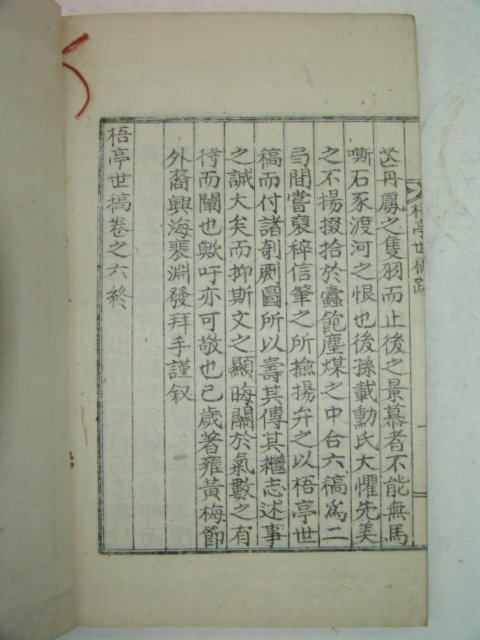 丹鳳之隻羽而止後之景慕者不能無馬
嘶石豕渡河之恨也後孫載勳氏大懼先美
之不揚掇拾於蠹飽塵煤之中台六稿爲二
局間嘗裒稡信筆之所揄揚弁之以梧亭世
稿而付諸剞劂圖所以壽其傳其繼志述事
之誠大矣而抑斯文之顯晦關於氣數之有
待而闡也歟吁亦可敬也已歲著雍黃梅節
外裔興海裵淵發拜手謹叙
梧亭世稿卷之六終
梧亭世稿